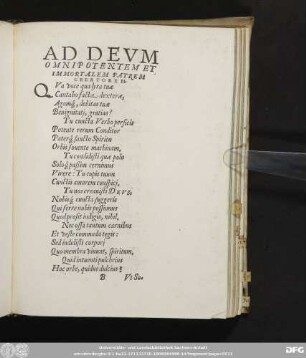 AD DEVM
OMNIPOTENTEM ET
IMMORTALEM PATREM
CREATOREM.
QVa voce, qua lyra tuæ
Cantabo facta dexteræ,
Agamq́; debitas tuæ
Benignitati, gratias?
Tu cuncta Verbo perficis
Potente rerum Conditor
Paterq́; sancto Spiritu
Orbis fouente machinam,
Tu voluisti quæ polo
Soloq́; passim cernimus
Viuere: Tu rapis tuum
Cunctis amorem
Tu nos creasti DEVS,
Nobisq́; cuncta suggeris
Qui ferre nobis possumus
Quod prosit indigis, nihil,
Nec ossa tantum carnibus
Et veste commoda tegis:
Sed indidisti corpori
Quo membra viuant, spiritum,
Quid intuenti pulchrius
Hoc orbe, quid dulcius?
B Vt So-